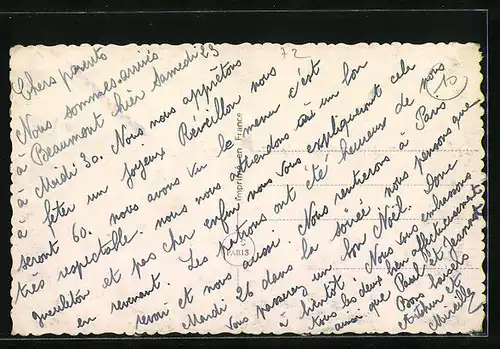 Chers parents
Nous sommes arrivés
à Beaumont hier Samedi 23
à Midi 30. Nous nous apprêtons
à fêter un joyeux Réveillon nous
seront 60. nous avons vu le menu c'est
très respectable nous nous attendons à un bon
gueuleton et pas cher enfin nous vous expliqueront cela
en revenant. Les patrons ont été heureux de nous
revoir et nous aussi. Nous rentrerons à Paris
Mardi 26 dans la soirée nous pensons que
vous passerez un bon Noël. Donc
à bientôt. Nous vous embrassons
tous les deux bien affectueusement
ainsi que Paul et Jeannot
Bons baisers
Arthur et
Mireille
72
10
Imprimé en France
PARIS